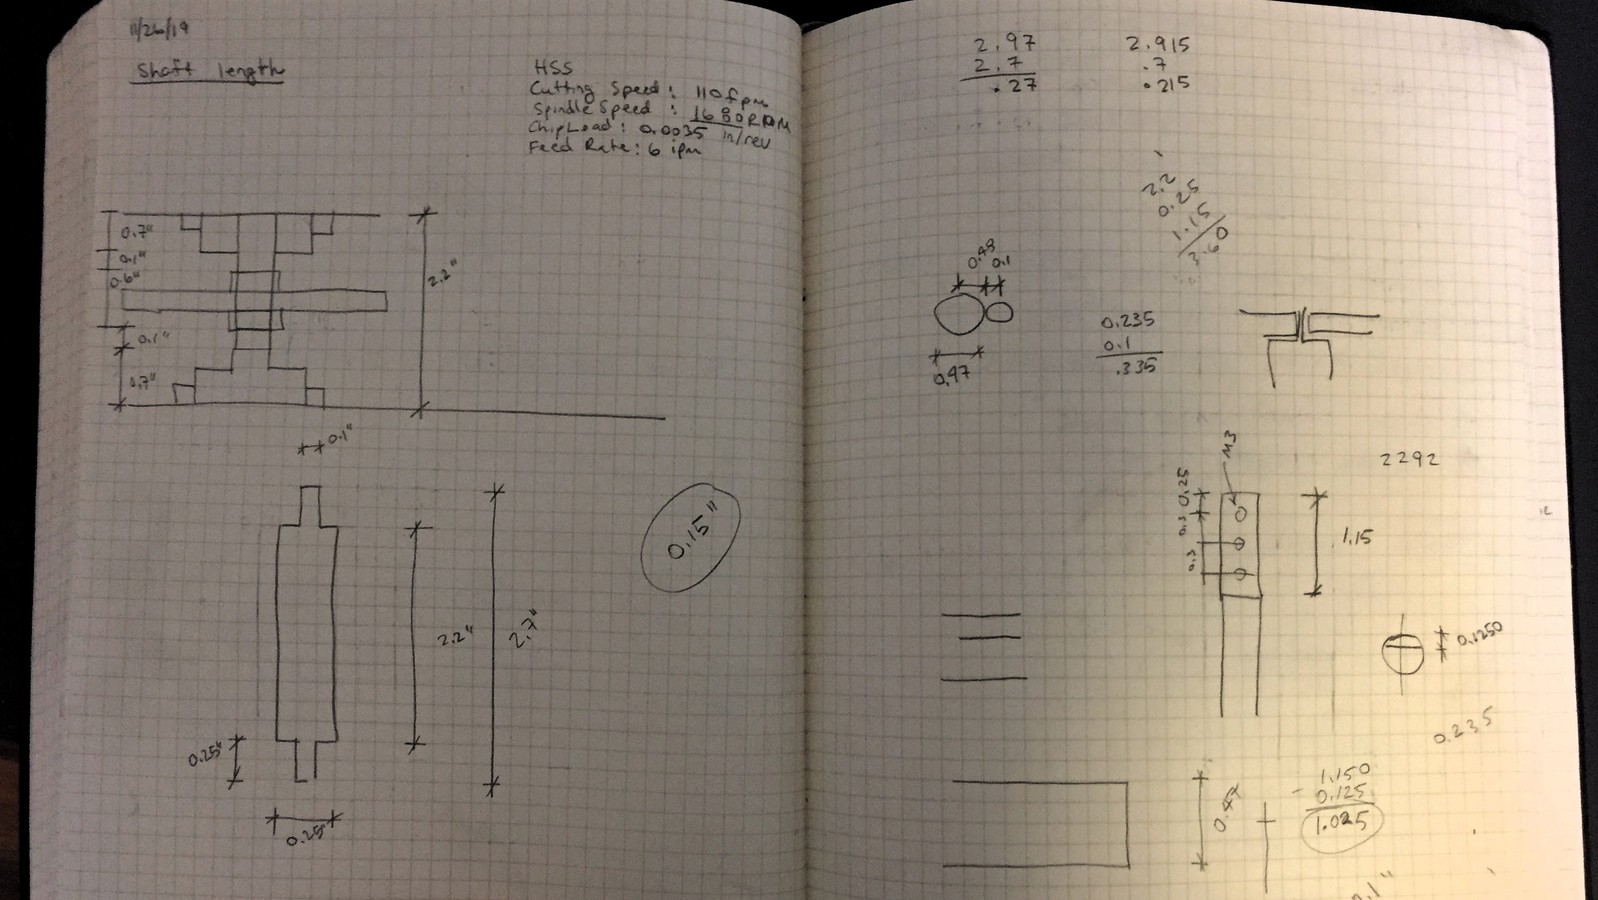 11/26/19
Shaft length
HSS
Cutting Speed: 110 fpm
Spindle Speed: 1680 RPM
Chip Load: 0.0035 in/rev
Feed Rate: 6 ipm
0.7"
0.1"
0.6"
0.1"
0.7"
2.2"
0.1"
2.2"
2.7"
0.15"
0.25"
0.25"
2.97
2.7
.27
2.915
.7
.215
2.2
0.25
1.15
3.60
0.48
0.1
0.47
0.235
0.1
.335
M3
2292
0.25
0.3
0.3
1.15
0.1250
0.235
1.150
- 0.125
1.025
0.1"